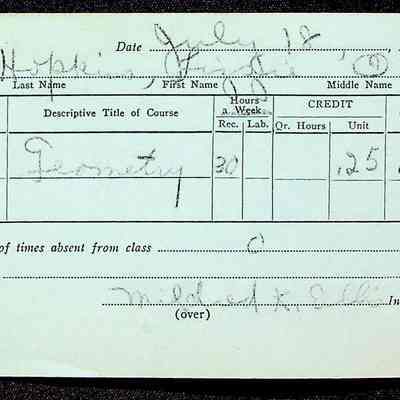 Date July 18
Hopkins,
Last Name First Name Middle Name
Descriptive Title of Course Hours a Week CREDIT
Rec. Lab. Qr. Hours Unit
Geometry 30 .25
of times absent from class 0
Mildred K. In
(over)